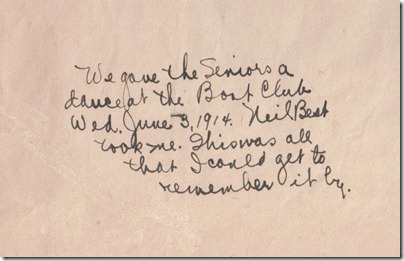 We gave the Seniors a
dance at the Boat Club
Wed. June 3, 1914. Neil Best
took me. This was all
that I could get to
remember it by.